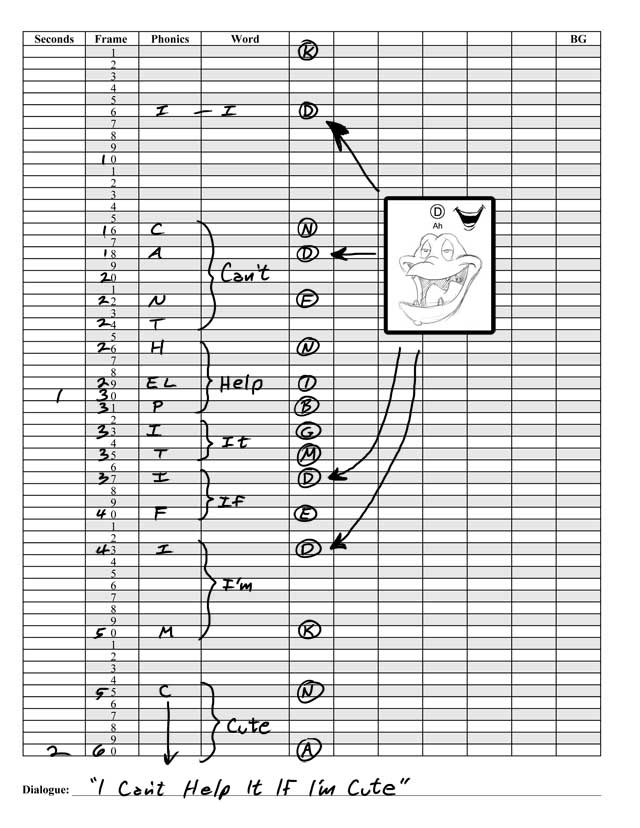 Seconds Frame Phonics Word BG
1 K
2
3
4
5
6 I — I D
7
8
9
10
1
2
3
4
5
16 C N
7
18 A D
9
20 Can't
1
22 N F
3
24 T
5
26 H N
7
8
29 EL Help I
1 30
31 P B
2
33 I G
4 It
35 T M
6
37 I D
8
9 If
40 F E
1
2
43 I D
4
5
6 I'm
7
8
9
50 M K
1
2
3
4
55 C N
6
7
8 Cute
9
2 60 A
D
Ah
Dialogue: "I Can't Help It If I'm Cute"